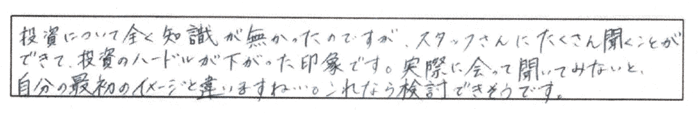 投資について全く知識が無かったのですが、スタッフさんにたくさん聞くことが
できて、投資のハードルが下がった印象です。実際に会って聞いてみないと、
自分の最初のイメージと違いますね…。これなら検討できそうです。